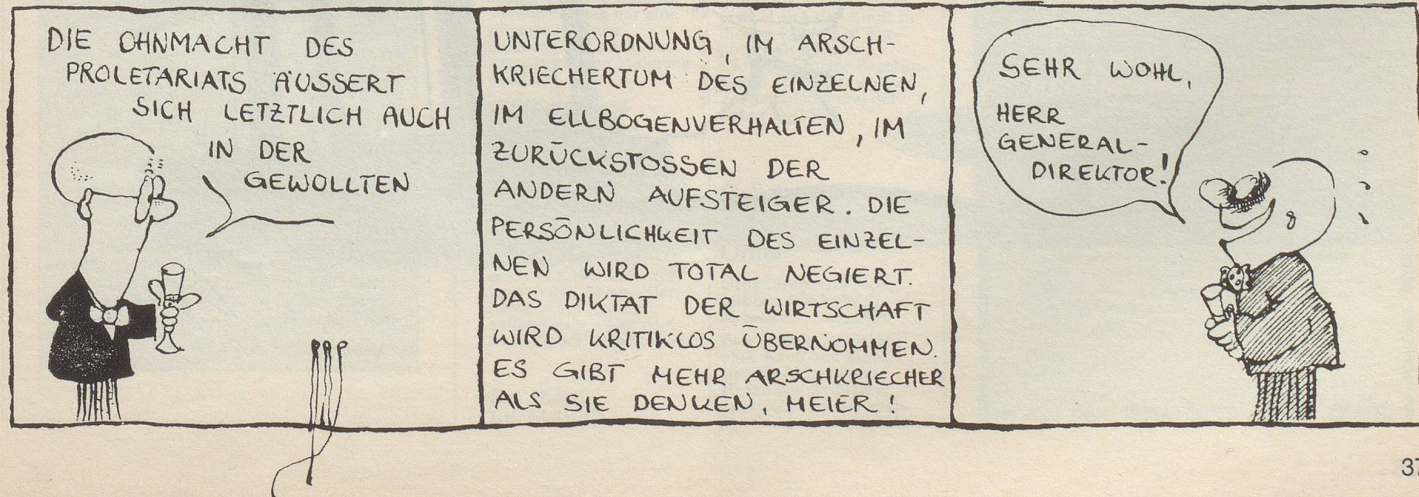 DIE OHNMACHT DES
PROLETARIATS ÄUSSERT
SICH LETZTLICH AUCH
IN DER
GEWOLLTEN
UNTERORDNUNG, IM ARSCH-
KRIECHERTUM DES EINZELNEN,
IM ELLBOGENVERHALTEN, IM
ZURÜCKSTOSSEN DER
ANDERN AUFSTEIGER. DIE
PERSÖNLICHKEIT DES EINZEL-
NEN WIRD TOTAL NEGIERT.
DAS DIKTAT DER WIRTSCHAFT
WIRD KRITIKLOS ÜBERNOMMEN.
ES GIBT MEHR ARSCHKRIECHER
ALS SIE DENKEN, MEIER!
SEHR WOHL,
HERR
GENERAL-
DIREKTOR!
37